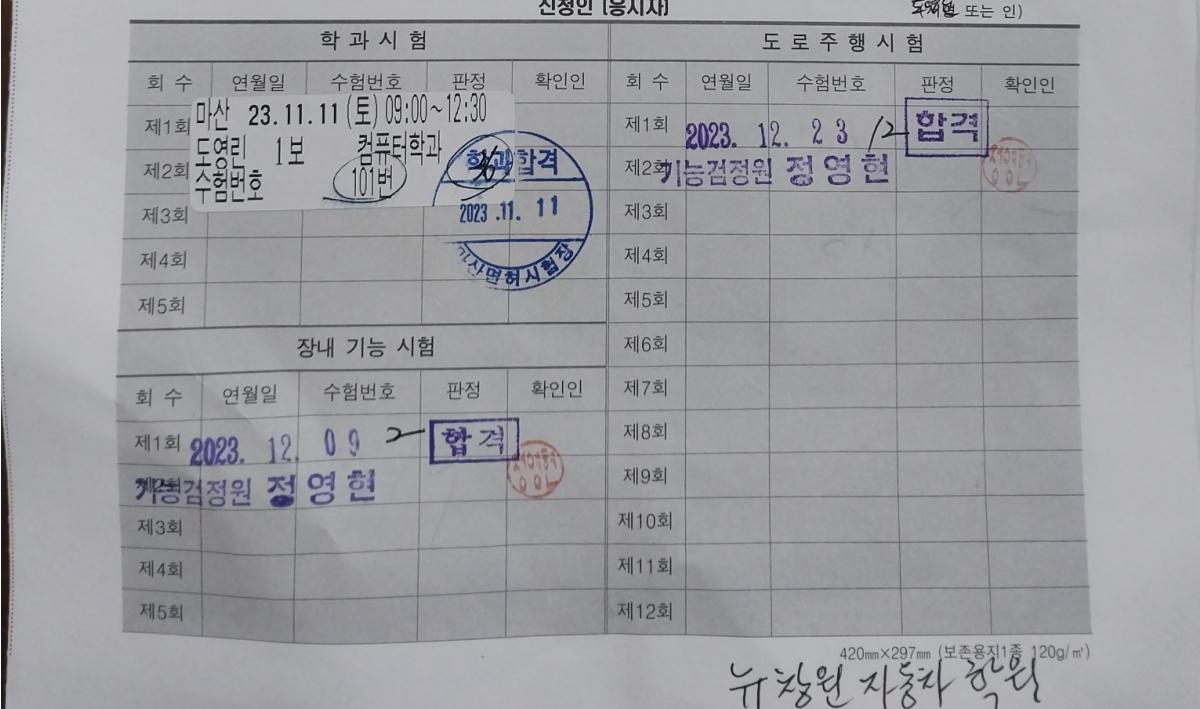 신청인 [응시자]
또는 인)
학 과 시 험
회 수 연월일 수험번호 판정 확인인
마산 23.11.11(토) 09:00~12:30
제1회 도영린 1보 컴퓨터학과
제2회 수험번호 101번
학과합격
2023.11.11
마산면허시험장
제3회
제4회
제5회
장내 기능 시험
회 수 연월일 수험번호 판정 확인인
제1회 2023. 12. 09 2 합격
기능검정원 정영현
제3회
제4회
제5회
도 로 주 행 시 험
회 수 연월일 수험번호 판정 확인인
제1회 2023. 12. 23 12 합격
제2회 기능검정원 정영현
제3회
제4회
제5회
제6회
제7회
제8회
제9회
제10회
제11회
제12회
420㎜×297㎜ (보존용지1종 120g/㎡)
뉴창원 자동차 학원